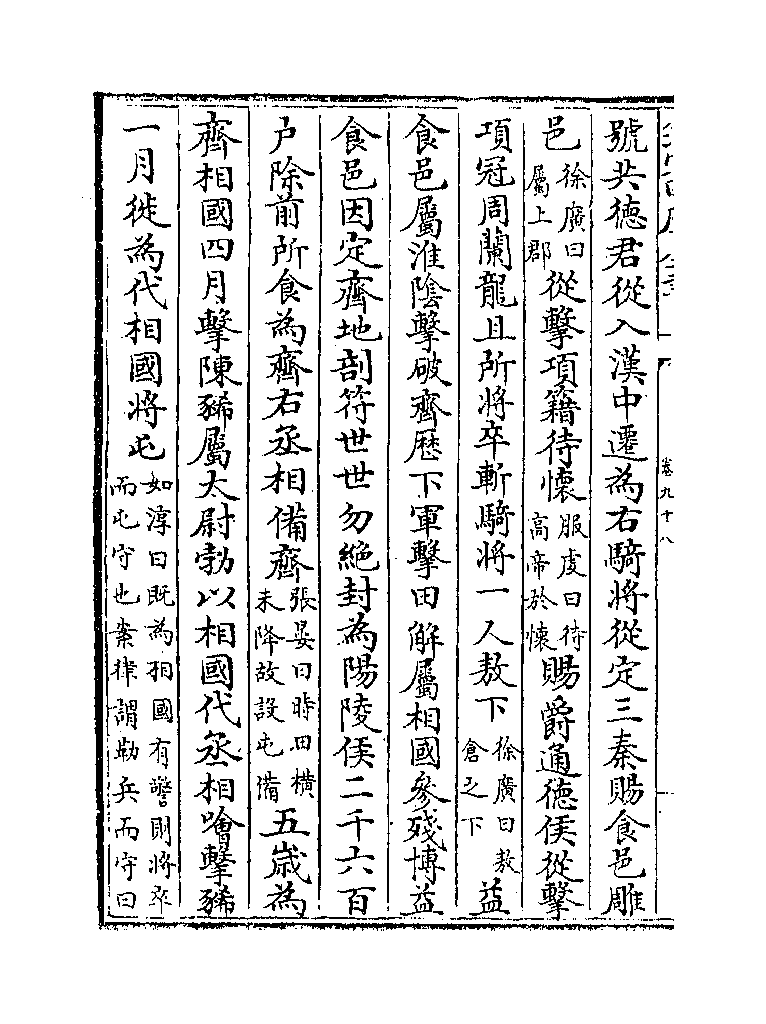 號共徳君從入漢中遷為右騎將從定三秦賜食邑雕
邑徐廣曰屬上郡從擊項籍待懷服䖍曰待高帝於懷賜爵通徳侯從擊
項冠周蘭龍且所將卒斬騎將一人敖下徐廣曰敖倉之下益
食邑屬淮陰擊破齊歴下軍擊田解屬相國參殘博益
食邑因定齊地剖符世世勿絶封為陽陵侯二千六百
户除前所食為齊右丞相備齊張晏曰時田橫未降故設屯備五歳為
齊相國四月擊陳豨屬太尉勃以相國代丞相噲擊豨
一月徙為代相國將屯如淳曰既為相國有警則將卒而屯守也案律謂勒兵而守曰
卷九十八